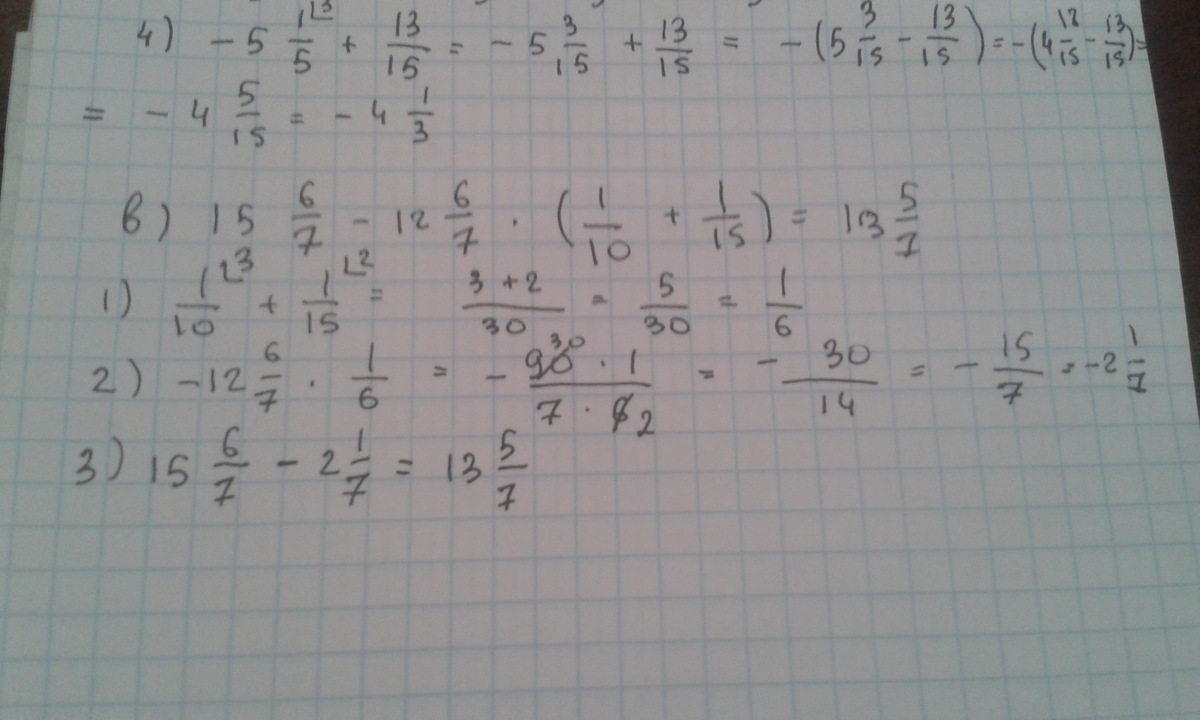 4) - 5 1/5 ⌊3 + 13/15 = - 5 3/15 + 13/15 = - (5 3/15 - 13/15) = - (4 18/15 - 13/15) =
= - 4 5/15 = - 4 1/3
в) 15 6/7 - 12 6/7 · (1/10 + 1/15) = 13 5/7
1) 1/10 ⌊3 + 1/15 ⌊2 = 3 + 2/30 = 5/30 = 1/6
2) - 12 6/7 · 1/6 = - 90 30 · 1/7 · 6 2 = - 30/14 = - 15/7 = - 2 1/7
3) 15 6/7 - 2 1/7 = 13 5/7